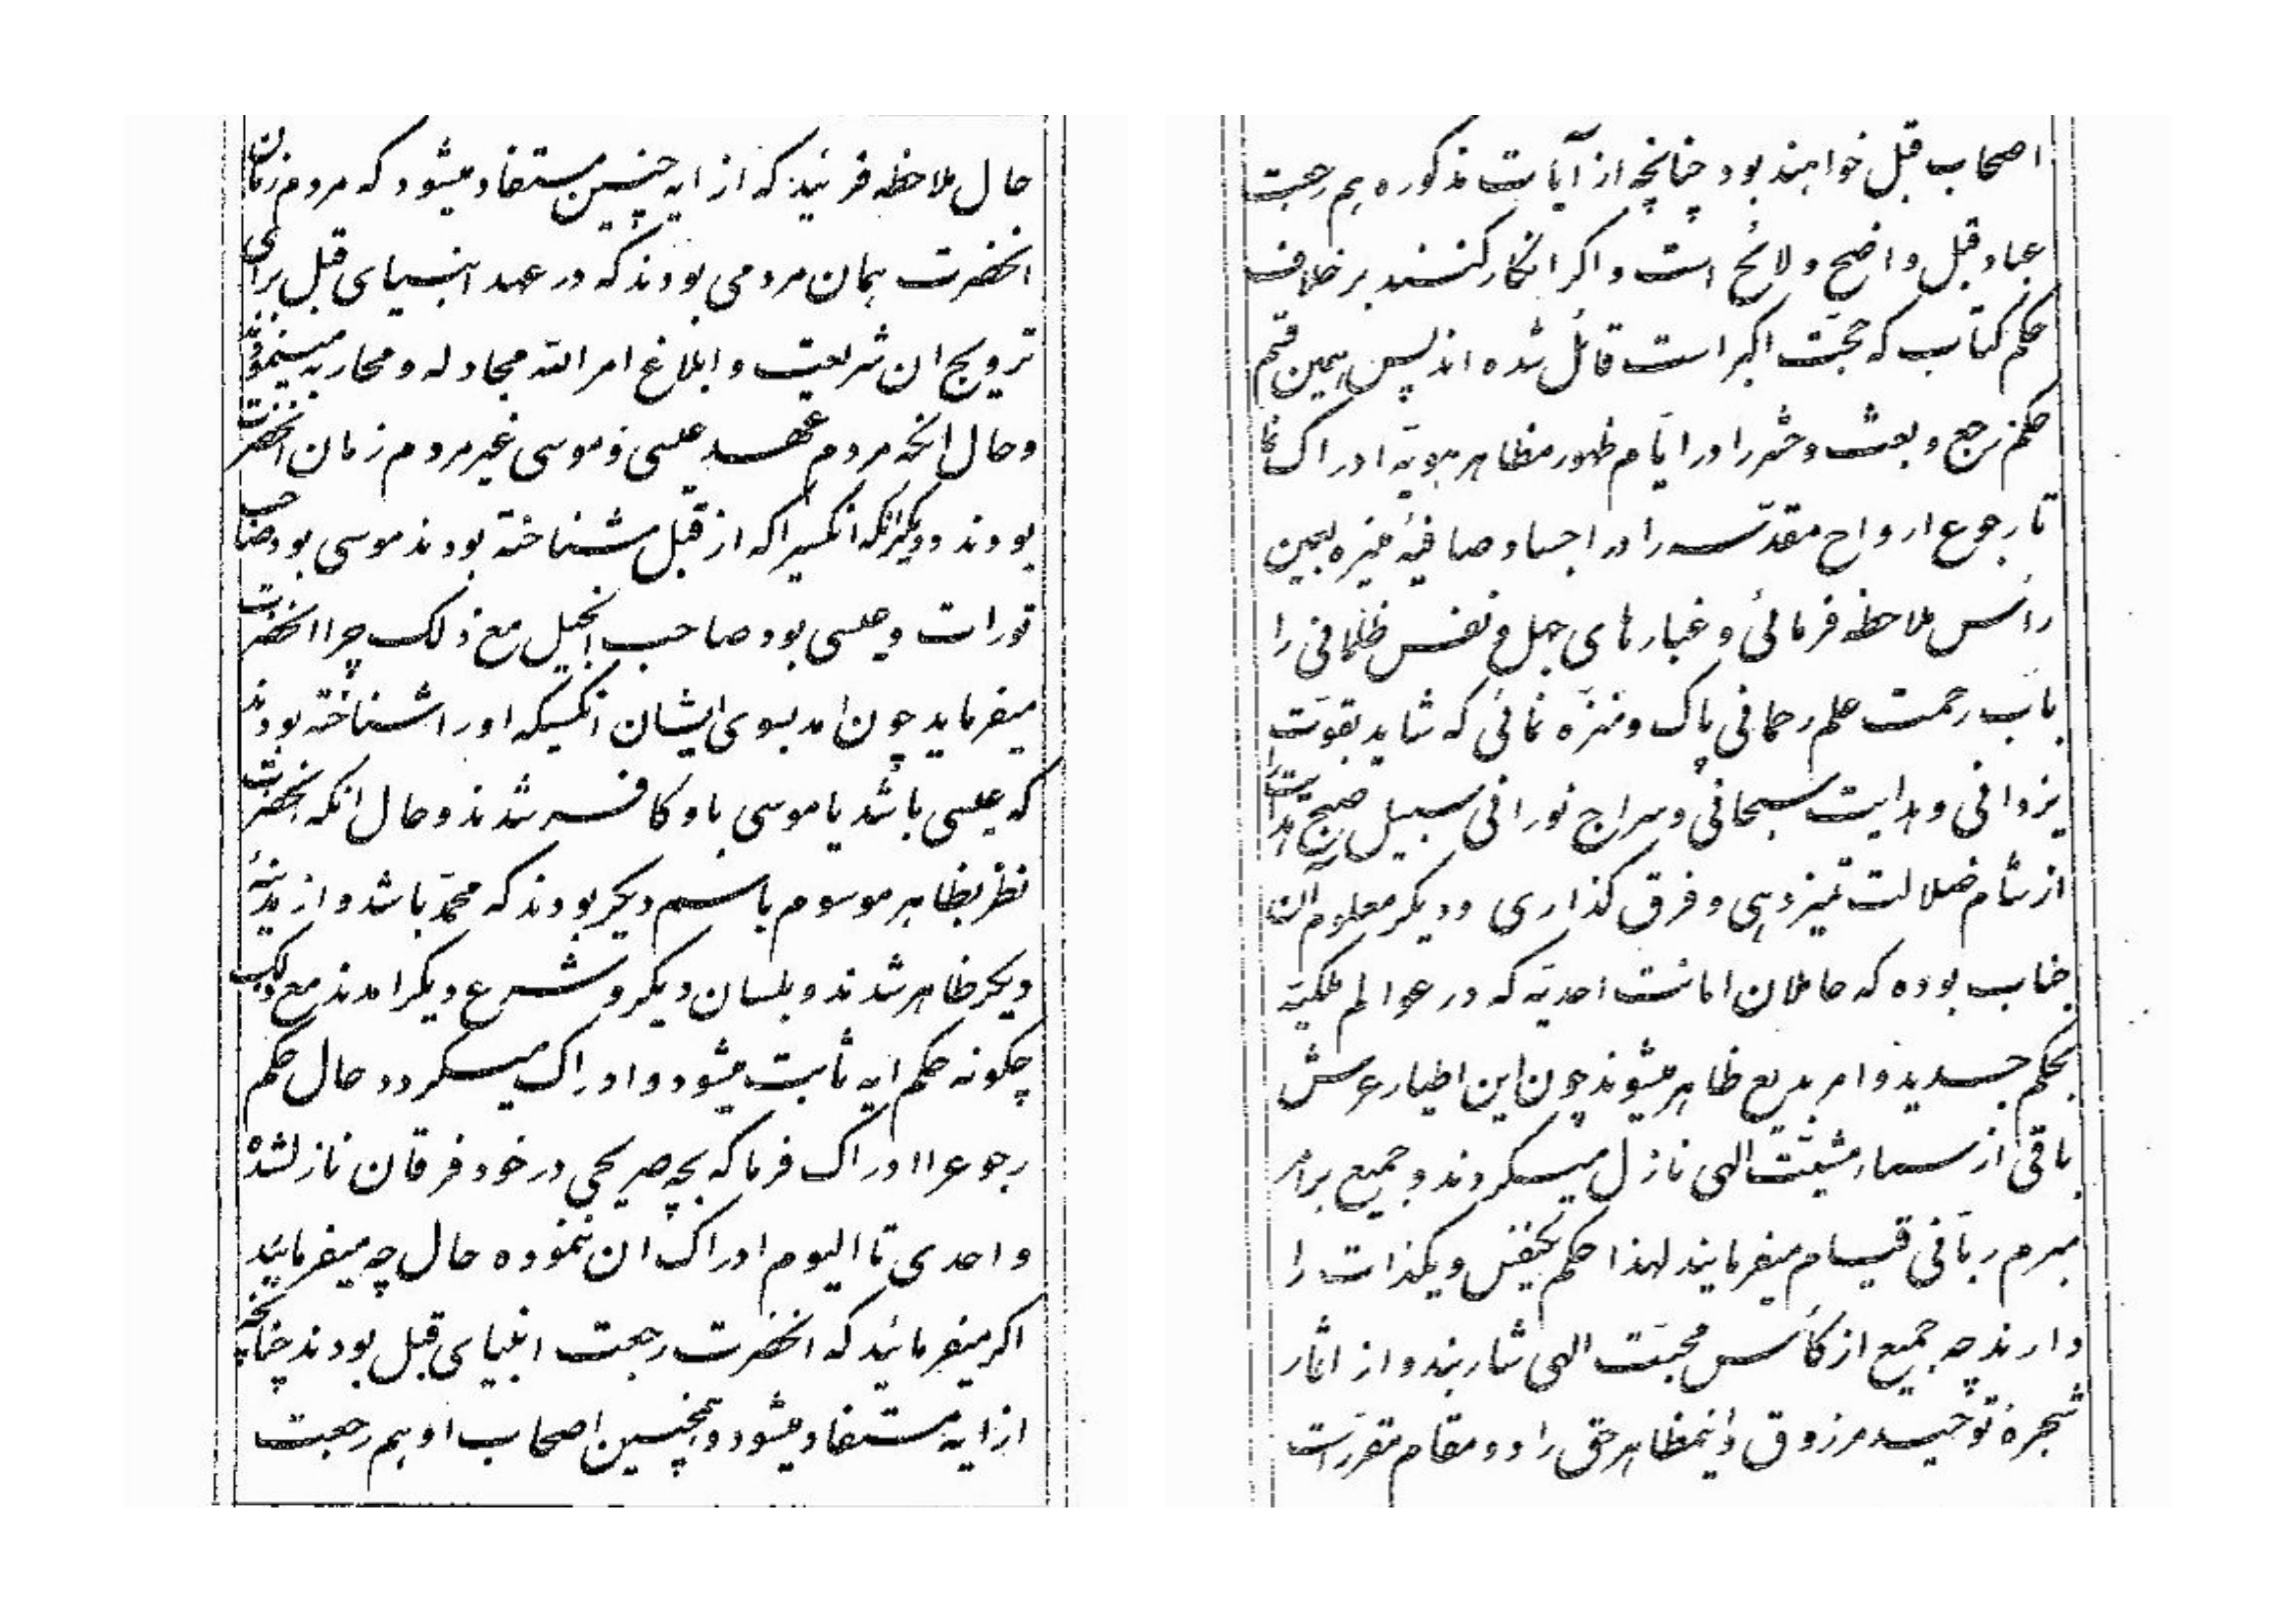 حال ملاحظه فرمائید که از ایه چنین مستفاد میشود که مردم زمان
انحضرت همان مردمی بودند که در عهد انبیای قبل برای
ترویج ان شریعت و ابلاغ امر الله مجادله و محاربه مینمودند
و حال انکه مردم عهد عیسی و موسی غیر مردم زمان انحضرت
بودند و دیگر انکه انکسیرا که از قبل شناخته بودند موسی بود صاحب
تورات و عیسی بود صاحب انجیل مع ذلک چرا انحضرت
میفرماید چون امد بسوی ایشان انکسیکه او را شناخته بودند
که عیسی باشد یا موسی باو کافر شدند و حال انکه انحضرت
نظر بظاهر موسوم باسم دیگر بودند که محمّد باشد و از مدینهٔ
دیگر ظاهر شدند و بلسان دیگر و شرع دیگر امدند مع ذلک
چکونه حکم ایه ثابت میشود و ادراک میگردد حال حکم
رجوع را ادراک فرما که بچه صریحی در خود فرقان نازل شده
و احدی تا الیوم ادراک ان ننموده حال چه میفرمائید
اکر میفرمائید که انحضرت رجعت انبیای قبل بودند چنانچه
از ایه مستفاد میشود و همچنین اصحاب او هم رجعت
اصحاب قبل خواهند بود چنانچه از آیات مذکوره هم رجعت
عباد قبل واضح و لائح است و اکر انکار کنند بر خلاف
حکم کتاب که حجّت اکبر است قائل شده اند پس همین قسم
حکم رجع و بعث و حشر را در ایّام ظهور مظاهر هویّه ادراک نما
تا رجوع ارواح مقدّسه را در اجساد صافیهٔ منیره بعین
رأس ملاحظه فرمائی و غبارهای جهل و نفس ظلمانی را
باب رحمت علم رحمانی پاک و منزّه نمائی که شاید بقوّت
یزدانی و هدایت سبحانی و سراج نورانی سبیل صبح هدایت را
از شام ضلالت تمیز دهی و فرق گذاری و دیگر معلوم آن
جناب بوده که حاملان امانت احدیّه که در عوالم ملکیّه
بحکم جدید و امر بدیع ظاهر میشوند چون این اطیار عرش
باقی از سماء مشیّت الهی نازل میگردند و جمیع بر امر
مبرم ربّانی قیام میفرمایند لهذا حکم یکنفس و یکذات را
دارند چه جمیع از کأس محبّت الهی شاربند و از اثمار
شجرهٔ توحید مرزوق و اینمظاهر حق را دو مقام مقرّرست